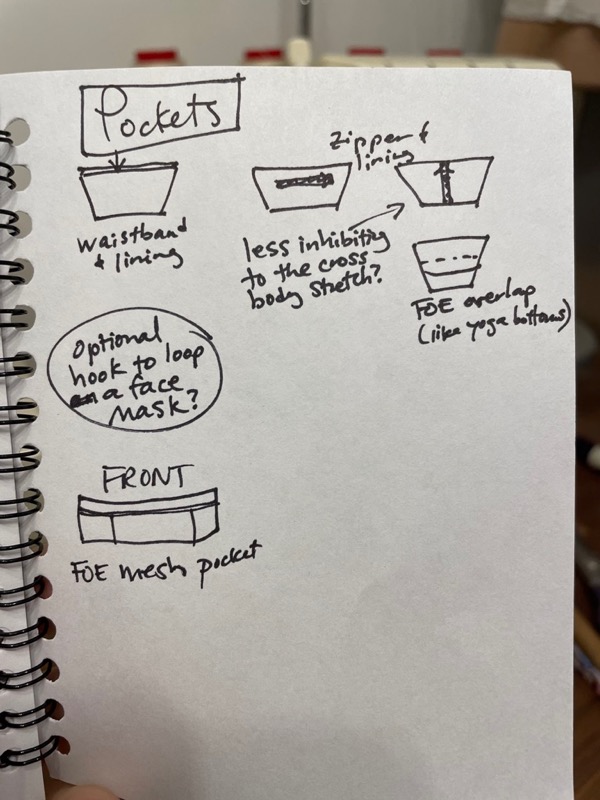 Pockets
waistband
& lining
Zipper &
lining
less inhibiting
to the cross
body stretch?
FOE overlap
(like yoga bottoms)
Optional
hook to loop
a face
mask?
FRONT
FOE mesh pocket